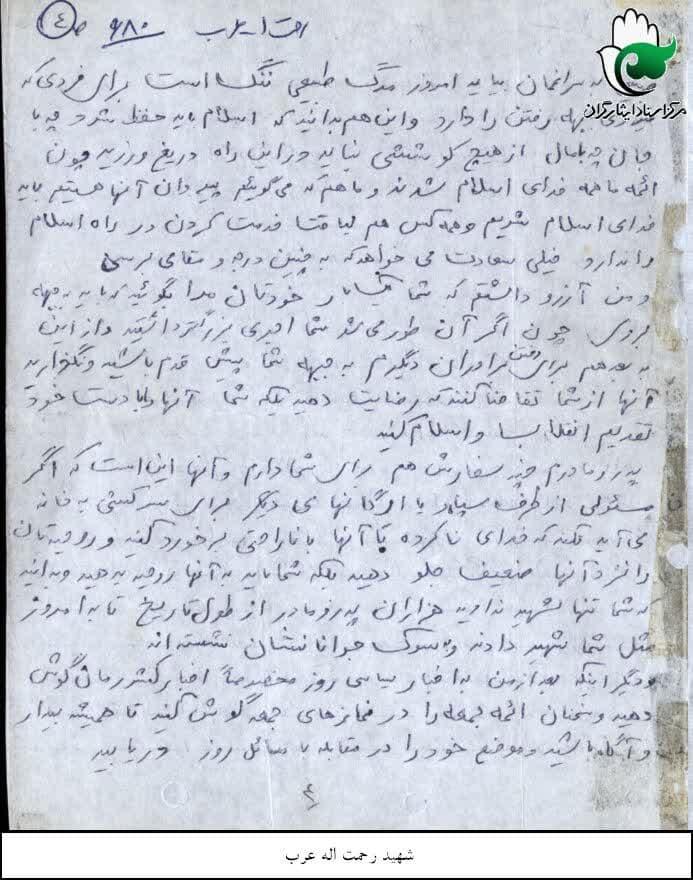 رحمت ا.. عرب ۶۸۰ ص ۴
مرکز اسناد ایثارگران
سرانمان بیاید امروز مرگ طبیعی ننگ است برای فردی که
جبهه رفتن را دارد و این هم بدانید که اسلام باید حفظ شود چه با
جان چه با مال از هیچ کوششی نباید در این راه دریغ ورزید چون
ائمه ما همه فدای اسلام شدند و ما هم که می گوئیم پیروان آنها هستیم باید
فدای اسلام شویم و همه کس هم لیاقت خدمت کردن در راه اسلام
را ندارد خیلی سعادت می خواهد که به چنین درجه و مقامی برسی
و من آرزو داشتم که شما یکبار خودتان مرا بگوئید که باید به جبهه
بروی چون اگر آن طور می شد شما اجری بزرگتر داشتید و از این
به بعد هم برای رفتن برادران دیگرم به جبهه شما پیش قدم باشید و نگذارید
آنها از شما تقاضا کنند که رضایت دهید بلکه شما آنها را با دست خود
تقدیم انقلاب و اسلام کنید
پدر و مادرم چند سفارش هم برای شما دارم و آنها این است که اگر
مسئولی از طرف سپاه یا ارگانهای دیگر برای سرکشی به خانه
می آید نکند که خدای نا کرده با آنها با ناراحتی برخورد کنید و روحیه تان
را نزد آنها ضعیف جلو دهید بلکه شما باید به آنها روحیه بدهید و بدانید
که شما تنها شهید ندارید هزاران پدر و مادر از طول تاریخ تا به امروز
مثل شما شهید دادند و به سوگ جوانانشان نشسته اند
و دیگر اینکه بعد از من به اخبار سیاسی روز مخصوصاً اخبار کشورمان گوش
دهید و سخنان ائمه جمعه را در نمازهای جمعه گوش کنید تا همیشه بیدار
و آگاه باشید و موضع خود را در مقابله با مسائل روز دریابید
۴
شهید رحمت اله عرب